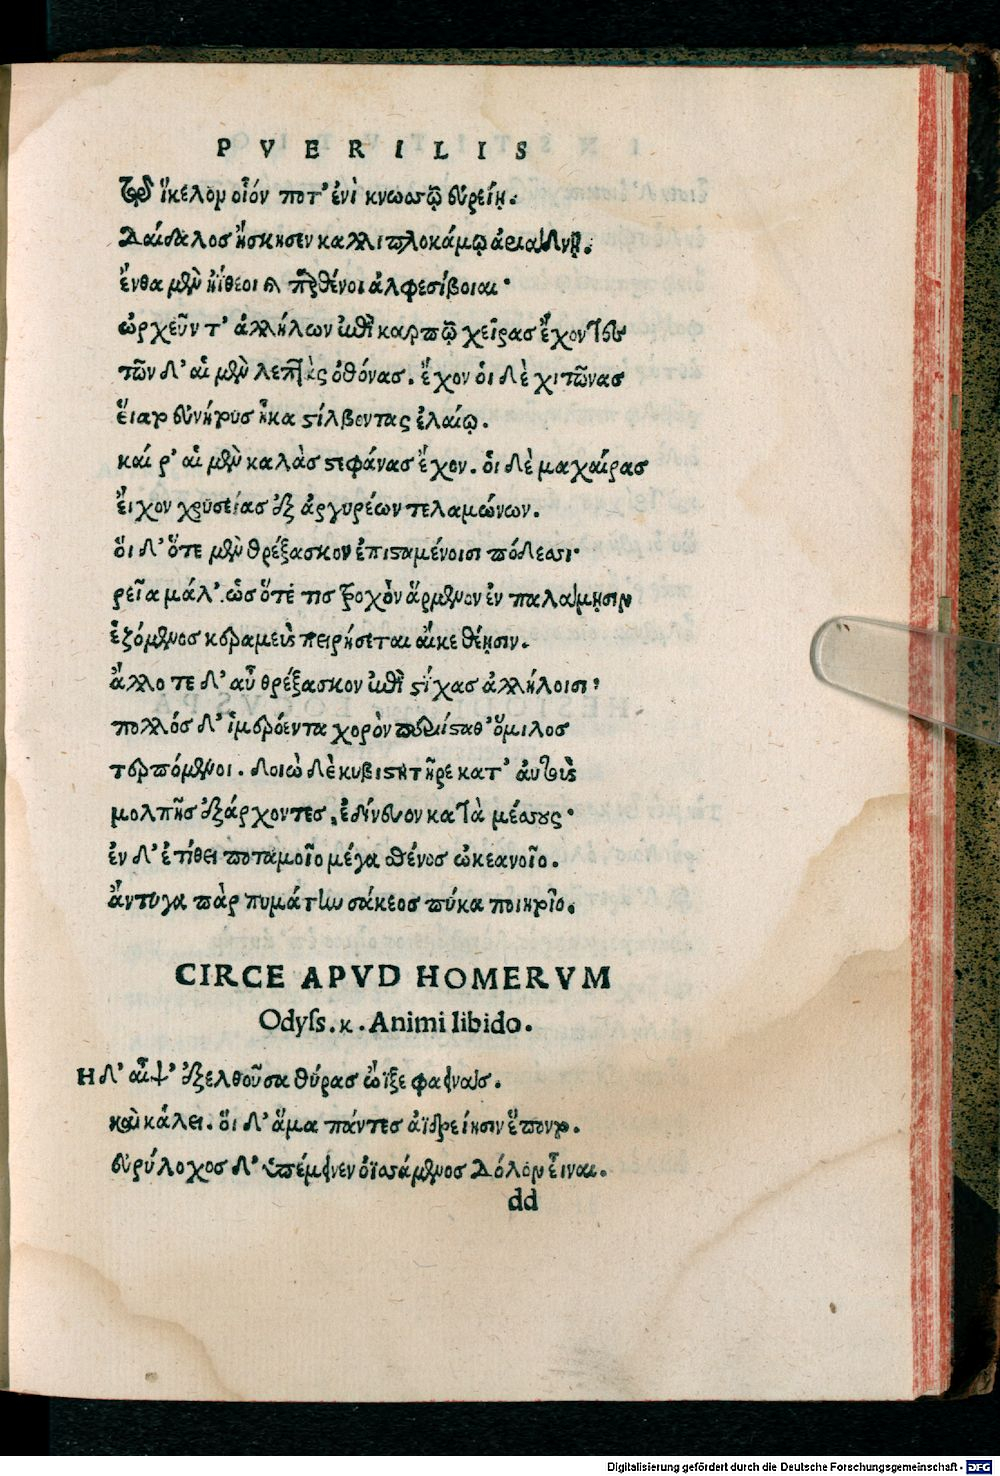 P V E R I L I S
τῷ ἴκελον οἷόν ποτ' ἐνὶ κνωσῷ εὐρείῃ.
Δαίδαλος ἤσκησεν καλλιπλοκάμῳ ἀριάδνῃ.
ἔνθα μὲν ἠίθεοι καὶ παρθένοι ἀλφεσίβοιαι·
ὠρχεῦντ' ἀλλήλων ἐπὶ καρπῷ χεῖρας ἔχοντες
τῶν δ' αἱ μὲν λεπτὰς ὀθόνας. ἔχον οἱ δὲ χιτῶνας
εἵαρ ἐυνήτους ἦκα στίλβοντας ἐλαίῳ.
καί ρ' αἱ μὲν καλὰς στεφάνας ἔχον. οἱ δὲ μαχαίρας
εἶχον χρυσείας ἐξ ἀργυρέων τελαμώνων.
οἱ δ' ὅτε μὲν θρέξασκον ἐπισταμένοισι πόδεσσι·
ρεῖα μάλ'. ὡς ὅτέ τις τροχὸν ἄρμενον ἐν παλάμῃσιν
ἑζόμενος κεραμεὺς πειρήσεται αἴκε θέῃσιν.
ἄλλοτε δ' αὖ θρέξασκον ἐπὶ στίχας ἀλλήλοισι·
πολλός δ' ἱμερόεντα χορὸν περιίσταθ' ὅμιλος
τερπόμενοι. δοιὼ δὲ κυβιστητῆρε κατ' αὐτοὺς
μολπῆς ἐξάρχοντες, ἐδίνευον κατὰ μέσσους·
ἐν δ' ἐτίθει ποταμοῖο μέγα σθένος ὠκεανοῖο.
ἄντυγα πὰρ πυμάτην σάκεος πύκα ποιητοῖο.
CIRCE APVD HOMERVM
Odyſs. κ. Animi libido.
Η δ' αἶψ' ἐξελθοῦσα θύρας ὤϊξε φαεινὰς.
καὶ κάλει. οἱ δ' ἅμα πάντες ἀϊδρείῃσιν ἕποντο.
εὐρύλοχος δ' ὑπέμεινεν ὀϊσσάμενος δόλον εἶναι.
dd
Digitalisierung gefördert durch die Deutsche Forschungsgemeinschaft - DFG